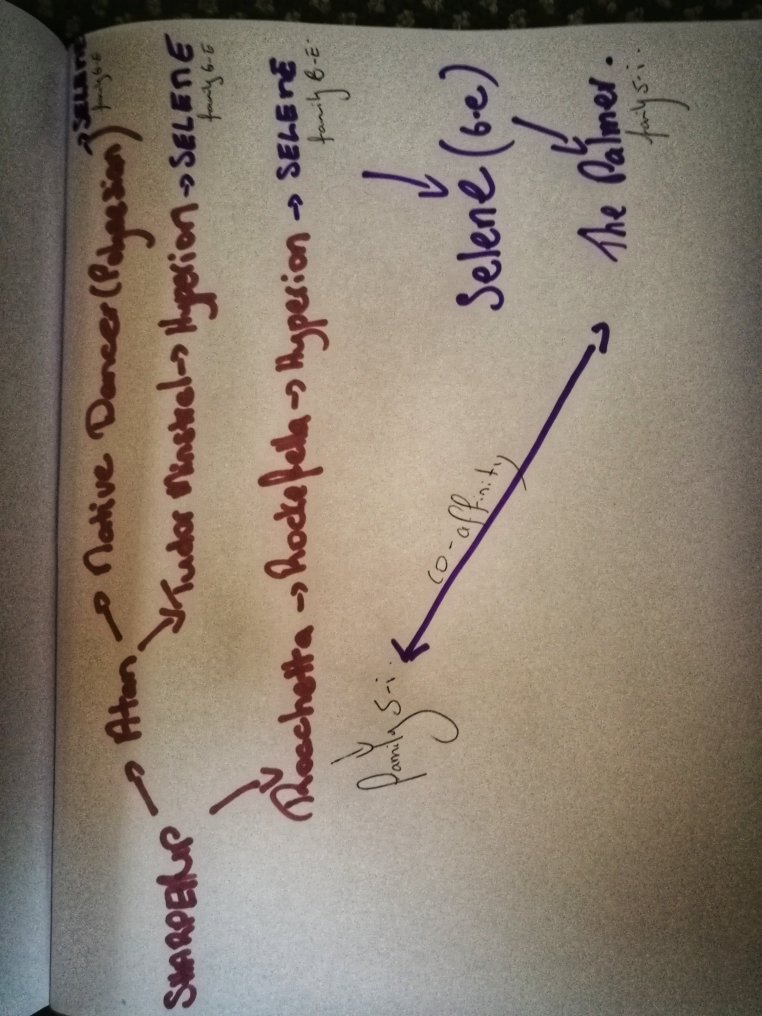 → SELENE
family 6-E
→ Native Dancer (Polynesian)
Atan
→ Tudor Minstrel → Hyperion → SELENE
family 6-E
SHARPEN UP →
→ Rocchetta → Rockefella → Hyperion → SELENE
family 6-E.
family 5-i.
co-affinity
Selene (6.e)
The Palmer.
family 5-i.